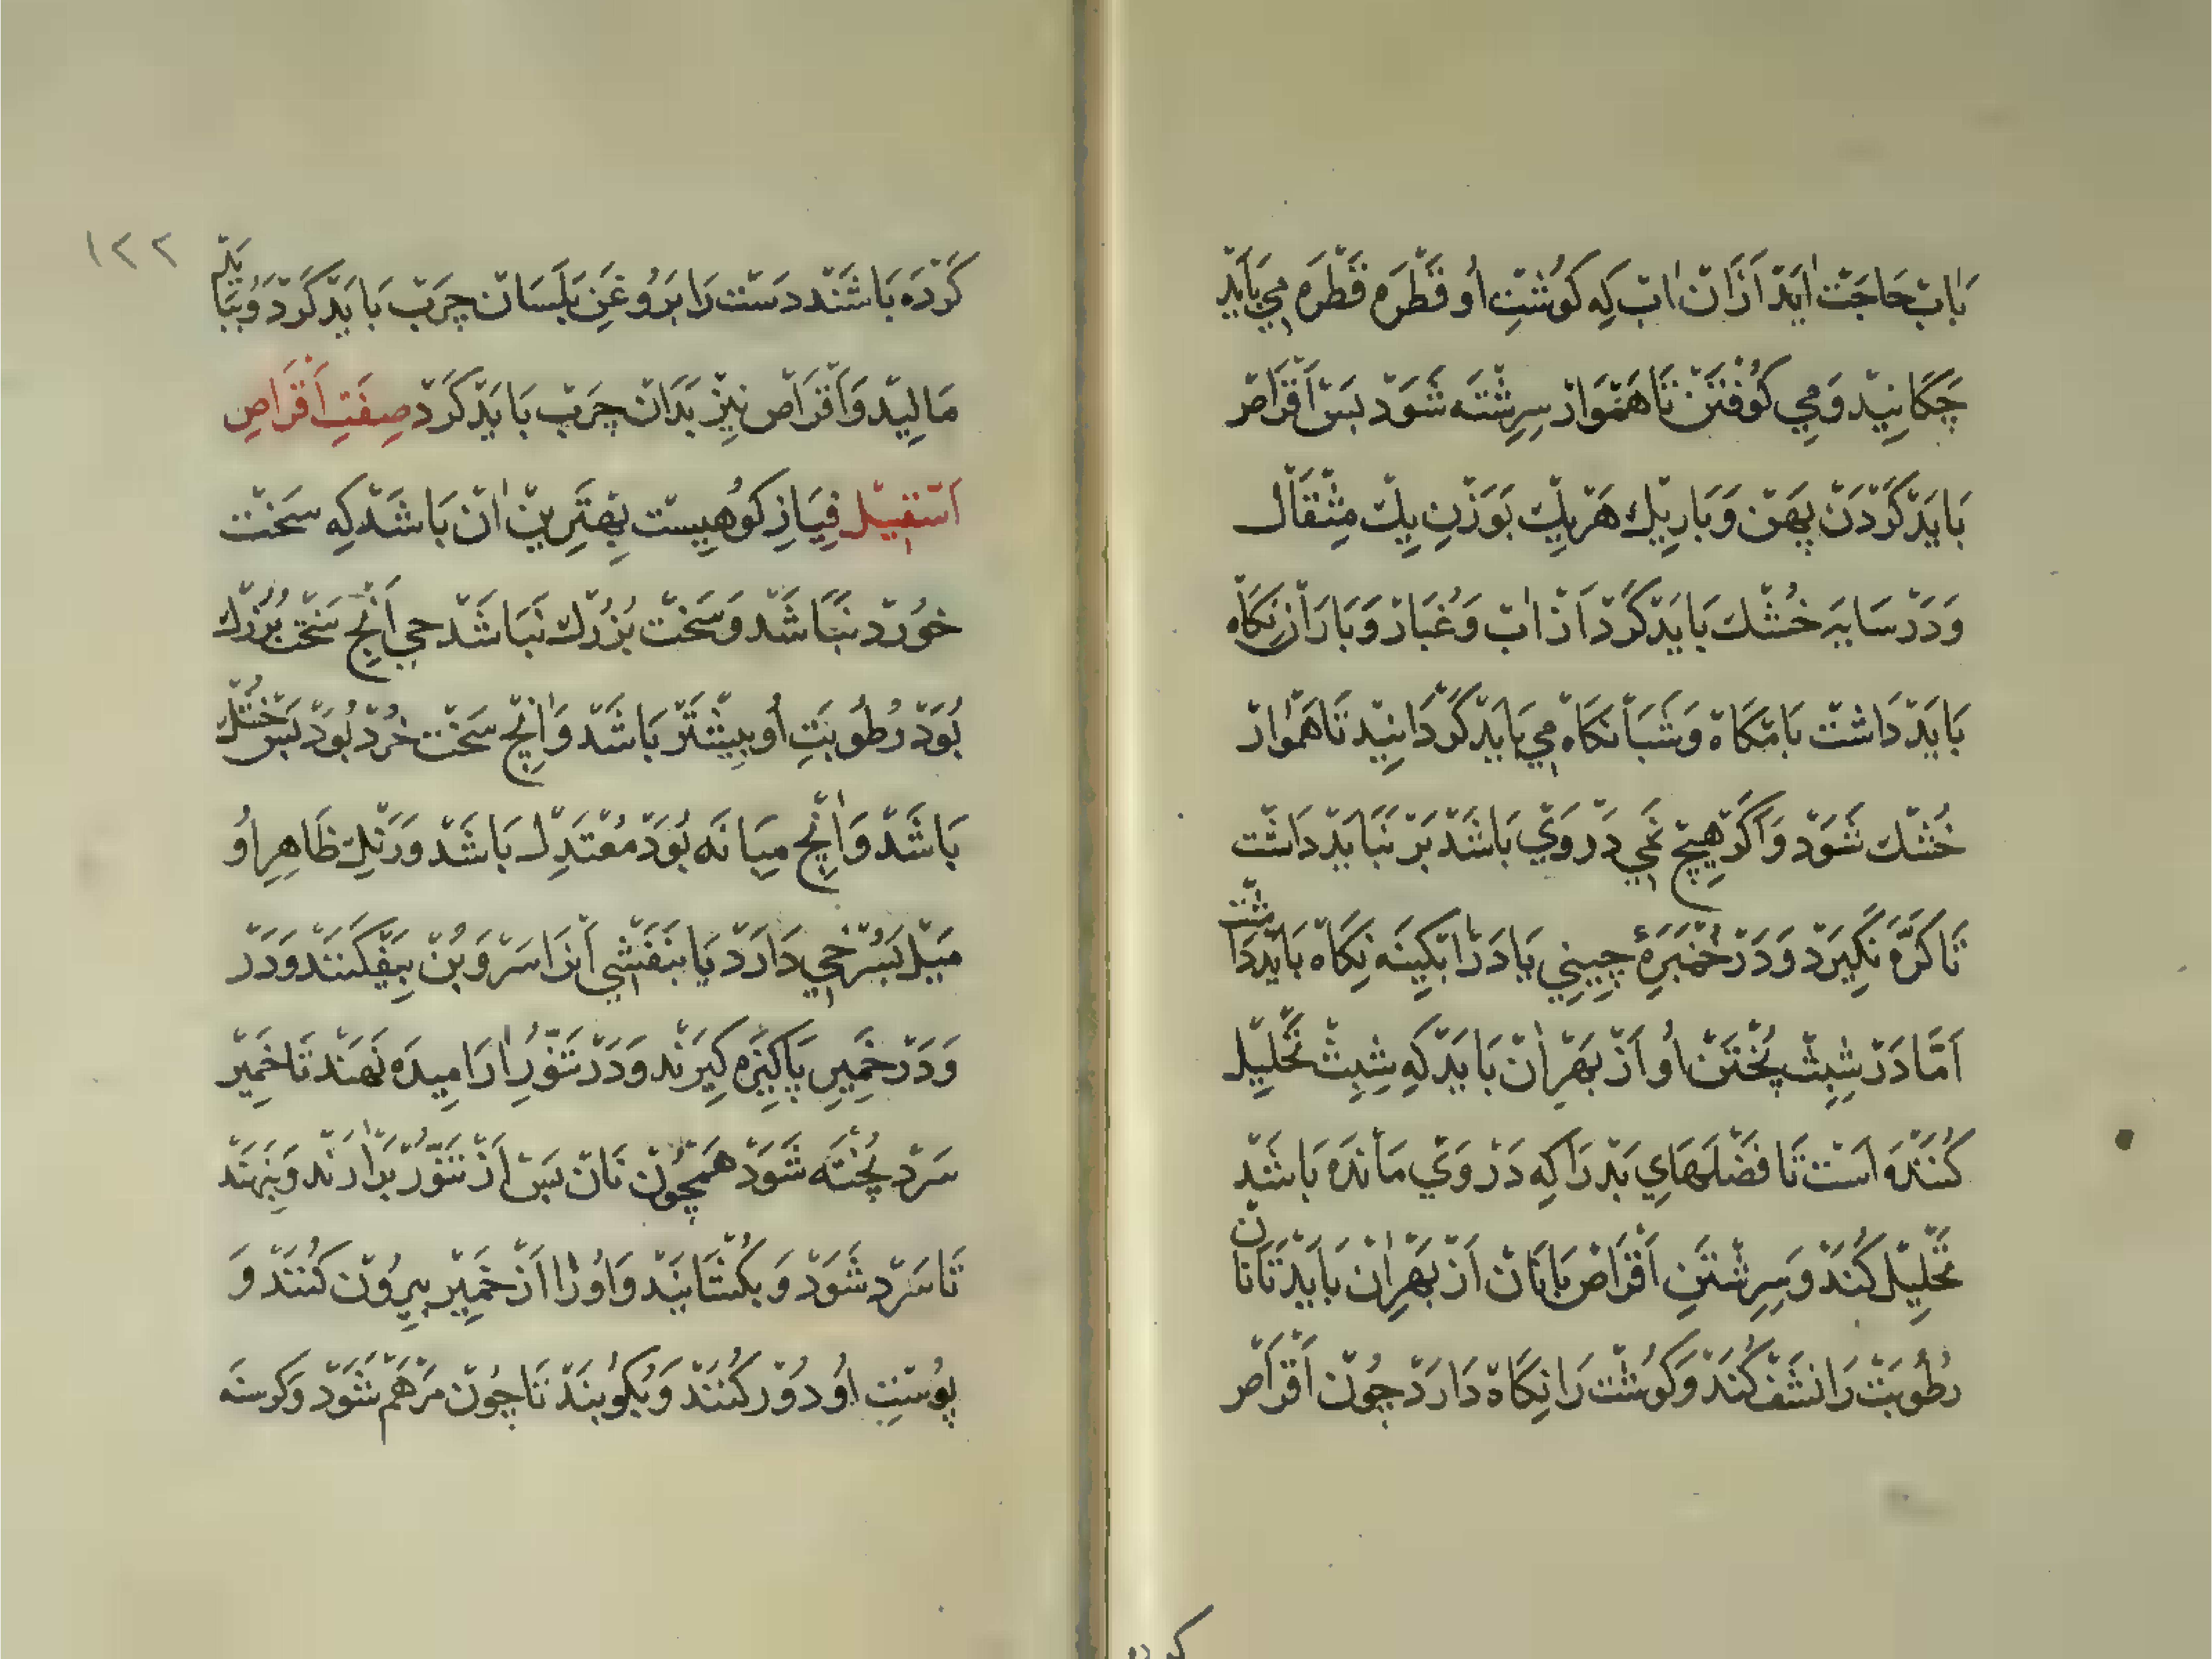 بَاٰبْ حَاجَتْ اٰيَدْ اَزْ اٰنْ اٰبْ كِه كَوُشْتِ اُو قَطْرَه قَطْرَه مِي بَايَدْ
چَكَانِيْد وَمِي كُوفْتَنْ تَا هَمْوَارْ سِرِشْتَه شَوَدْ بَسْ اَقْرَاصْ
بَايَدْ كَرْدَنْ پَهَنْ وَبَارِيْك هَرْيِكْ بَوَزْنِ يِكْ مِثْقَالْ
وَدَرْ سَايَه خُشْك بَايَدْ كَرْد اَزْ اٰبْ وَغُبَارْ وَبَارَاْنْ نِكَاْه
بَايَدْ دَاشْتْ بَامْكَاه وَشَبَانْكَاه مِي بَايَدْ كَرْدَانِيْد تَا هَمْوَارْ
خُشْك شَوَدْ وَاَكَرْ هِيْچ نَمِي دَرْ وَيْ بَاشَدْ بَرْ نَبَايَدْ دَاشْت
تَا كَرَّه نَكِيْرَدْ وَدَرْ خُمْبَرَهٔ چِيْنِي يَا دَرْ اٰبْكِيْنَه نِكَاه بَايَدْ دَاشْت
اَمَّا دَرْ شِبِثْ پُخْتَنْ اُو اَزْ بَهْرِ اٰنْ بَايَدْ كِه شِبِثْ تَحْلِيْل
كُنَنْدَه اسْت تَا فَضْلَهَايِ بَدْ رَا كِه دَرْ وَيْ مَانْدَه بَاشَدْ
تَحْلِيْل كُنَدْ وَسِرِشْتَنِ اَقْرَاصْ بَا نَانْ اَزْ بَهْرِ اٰنْ بَايَدْ تَا نَانْ
رُطُوبَتْ رَا نَشْفْ كُنَدْ وَكَوُشْت رَا نِكَاه دَارَدْ چُونْ اَقْرَاصْ
كرده
١٢٢
كَرْدَه بَاشَنْد دَسْت رَا بَرُوغَنِ بَلَسَانْ چَرَبْ بَايَدْ كَرْد وَبَبَايَدْ
مَالِيْد وَاَقْرَاصْ نِيْز بَدَانْ چَرَبْ بَايَدْ كَرْد صِفَتِ اَقْرَاصِ
اَسْقِيْل فِيَازِ كُوهِيسْت بِهْتَرِيْنْ اٰنْ بَاشَدْ كِه سَخْتْ
خُورْد نَبَاشَد وَسَخْتْ بُزُرْك نَبَاشَدْ جِي اَنْچ سَخْتْ بُزُرْك
بُوَدْ رُطُوبَتِ اُو بِيْشْتَرْ بَاشَدْ وَاٰنْچ سَخْتْ خُرْد بُوَدْ بَسْ خُشْك
بَاشَدْ وَاٰنْچ مِيَانَه بُوَدْ مُعْتَدِلْ بَاشَدْ وَرَنْكِ ظَاهِرِ اُو
مَيْل بَسُرْخِي دَارَدْ يَا بَنَفْشِي اَنْرَا سَرْ وَبُنْ بِيَفْكَنَنْد وَدَرْ
وَدَرْ خَمِيْرِ پَاكِيْزَه كِيْرَنْد وَدَرْ تَنُّوْرِ اٰرَامِيدَه نَهَنْد تَا خَمِيْر
سَرْد پُخْتَه شَوَدْ هَمْچُونْ نَانْ بَسْ اَزْ تَنُّوْر بَرْاٰرَنْد وَبِنِهَنْد
تَا سَرْد شَوَدْ وَبكُشَايَنْدْ وَاُوْرٰا اَزْ خَمِيْر بِيرُوْن كُنَنْد وَ
پُوسْتِ اُو دُوْر كُنَنْد وَبْكُوبَنْد تَا چُونْ مَرْهَمْ شَوَدْ وَكرسنَه